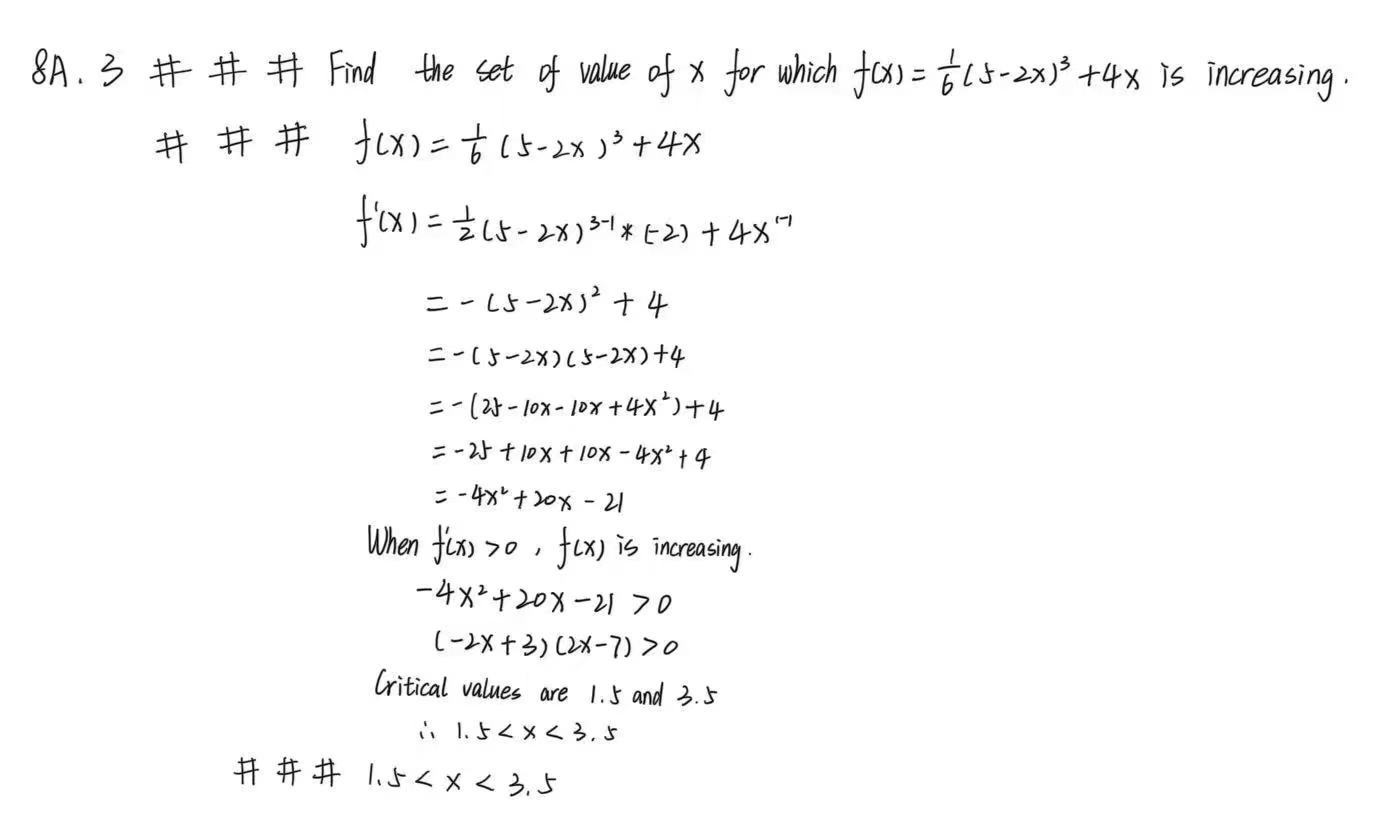 8A.3 # # # Find the set of value of x for which f(x) = 1/6 (5-2x)³ + 4x is increasing.
# # # f(x) = 1/6 (5-2x)³ + 4x
f'(x) = 1/2 (5-2x)³⁻¹ * (-2) + 4x¹⁻¹
= -(5-2x)² + 4
= -(5-2x)(5-2x)+4
= -(25-10x-10x+4x²)+4
= -25+10x+10x-4x²+4
= -4x²+20x-21
When f'(x) >0, f(x) is increasing.
-4x²+20x-21 >0
(-2x+3)(2x-7)>0
Critical values are 1.5 and 3.5
∴ 1.5<x<3.5
# # # 1.5<x<3.5